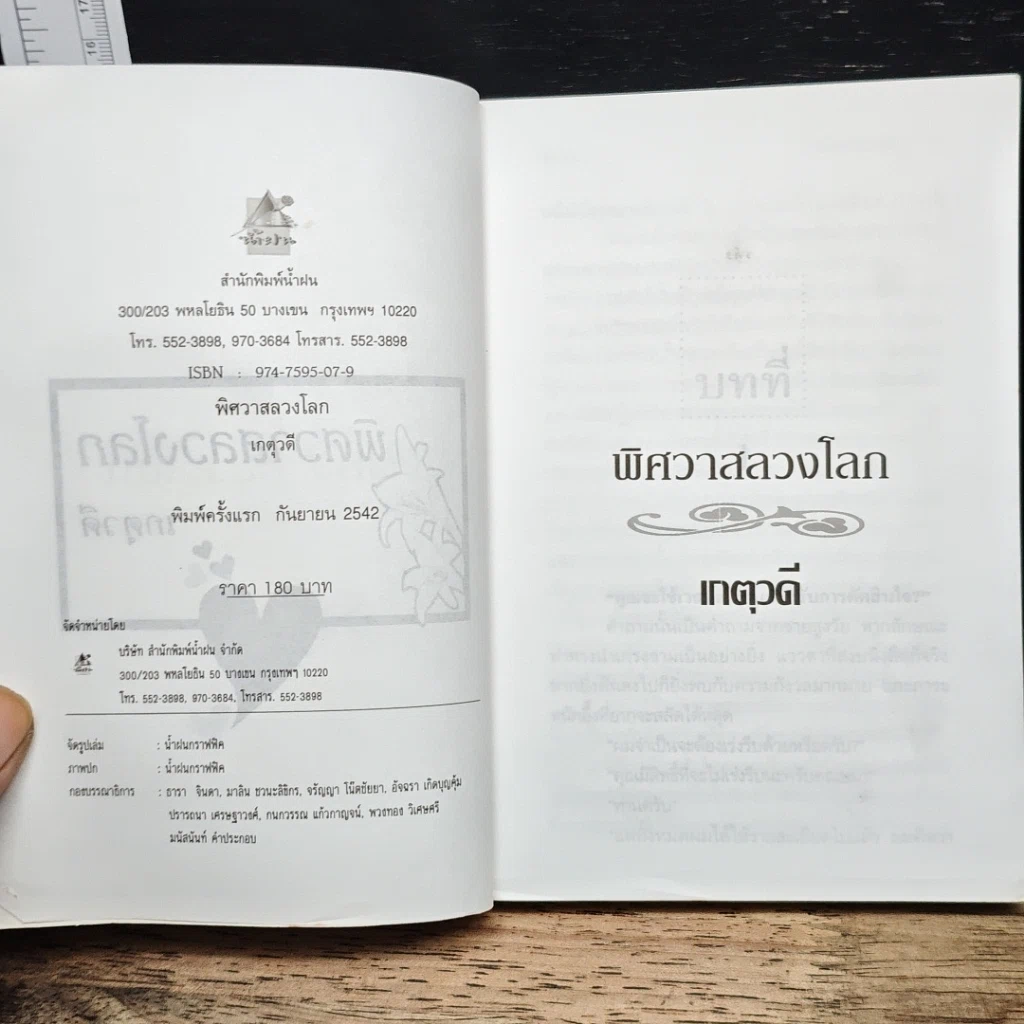 17
16
สำนักพิมพ์น้ำฝน
300/203 พหลโยธิน 50 บางเขน กรุงเทพฯ 10220
โทร. 552-3898, 970-3684 โทรสาร. 552-3898
ISBN : 974-7595-07-9
พิศวาสลวงโลก
เกตุวดี
พิมพ์ครั้งแรก กันยายน 2542
ราคา 180 บาท
จัดจำหน่ายโดย
บริษัท สำนักพิมพ์น้ำฝน จำกัด
300/203 พหลโยธิน 50 บางเขน กรุงเทพฯ 10220
โทร. 552-3898, 970-3684, โทรสาร. 552-3898
จัดรูปเล่ม : น้ำฝนกราฟฟิค
ภาพปก : น้ำฝนกราฟฟิค
กองบรรณาธิการ : ธารา จินดา, มาลิน ชวนะลิขิกร, จรัญญา โน๊ตชัยยา, อัจฉรา เกิดบุญคุ้ม
ปรารถนา เศรษฐาวงศ์, กนกวรรณ แก้วกาญจน์, พวงทอง วิเศษศรี
มนัสนันท์ คำประกอบ
บทที่
พิศวาสลวงโลก
เกตุวดี